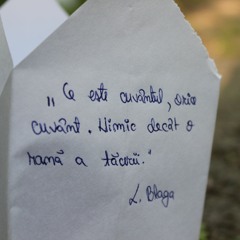 „Ce este cuvântul, orice
cuvânt. Nimic decât o
rană a tăcerii."
L. Blaga